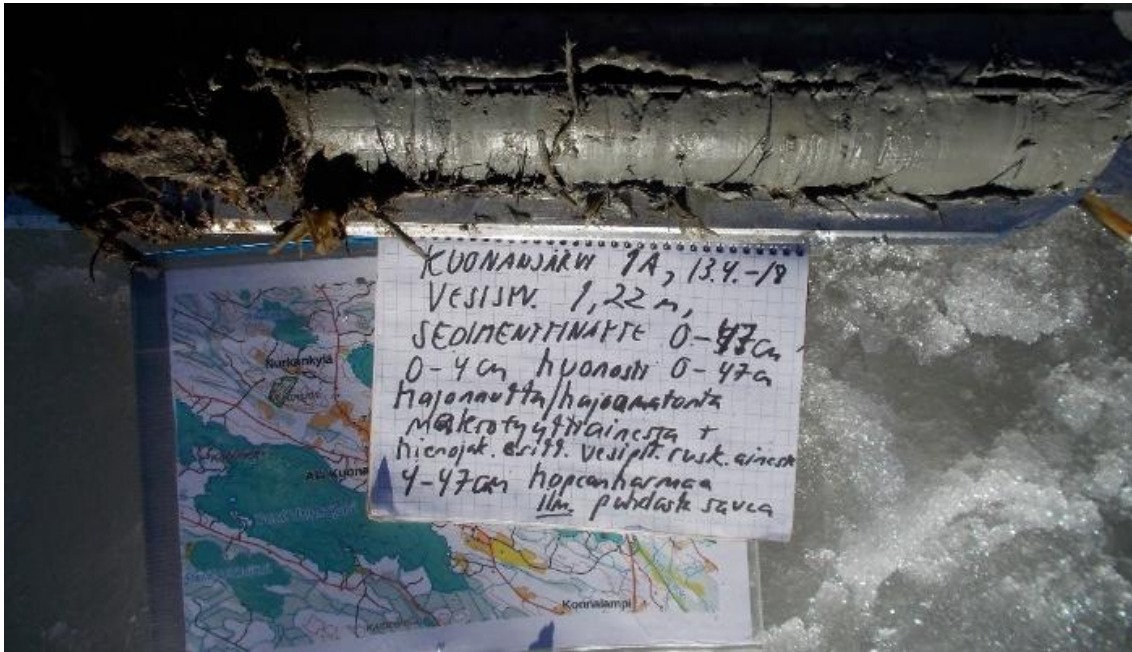 KUONANJÄRVI 1A, 13.4.-18
VESISYV. 1,22 m,
SEDIMENTTINÄYTE 0-47cm
0-4 cm huonosti 0-47cm
Hajonnutta/hajoamatonta
makrofyyttiainesta +
hienojak. vesipit. rusk. ainesta
4-47cm hopeanharmaa
ilm. puhdasta savea
Nurkankylä
Ala-Kuona
Konnalampi